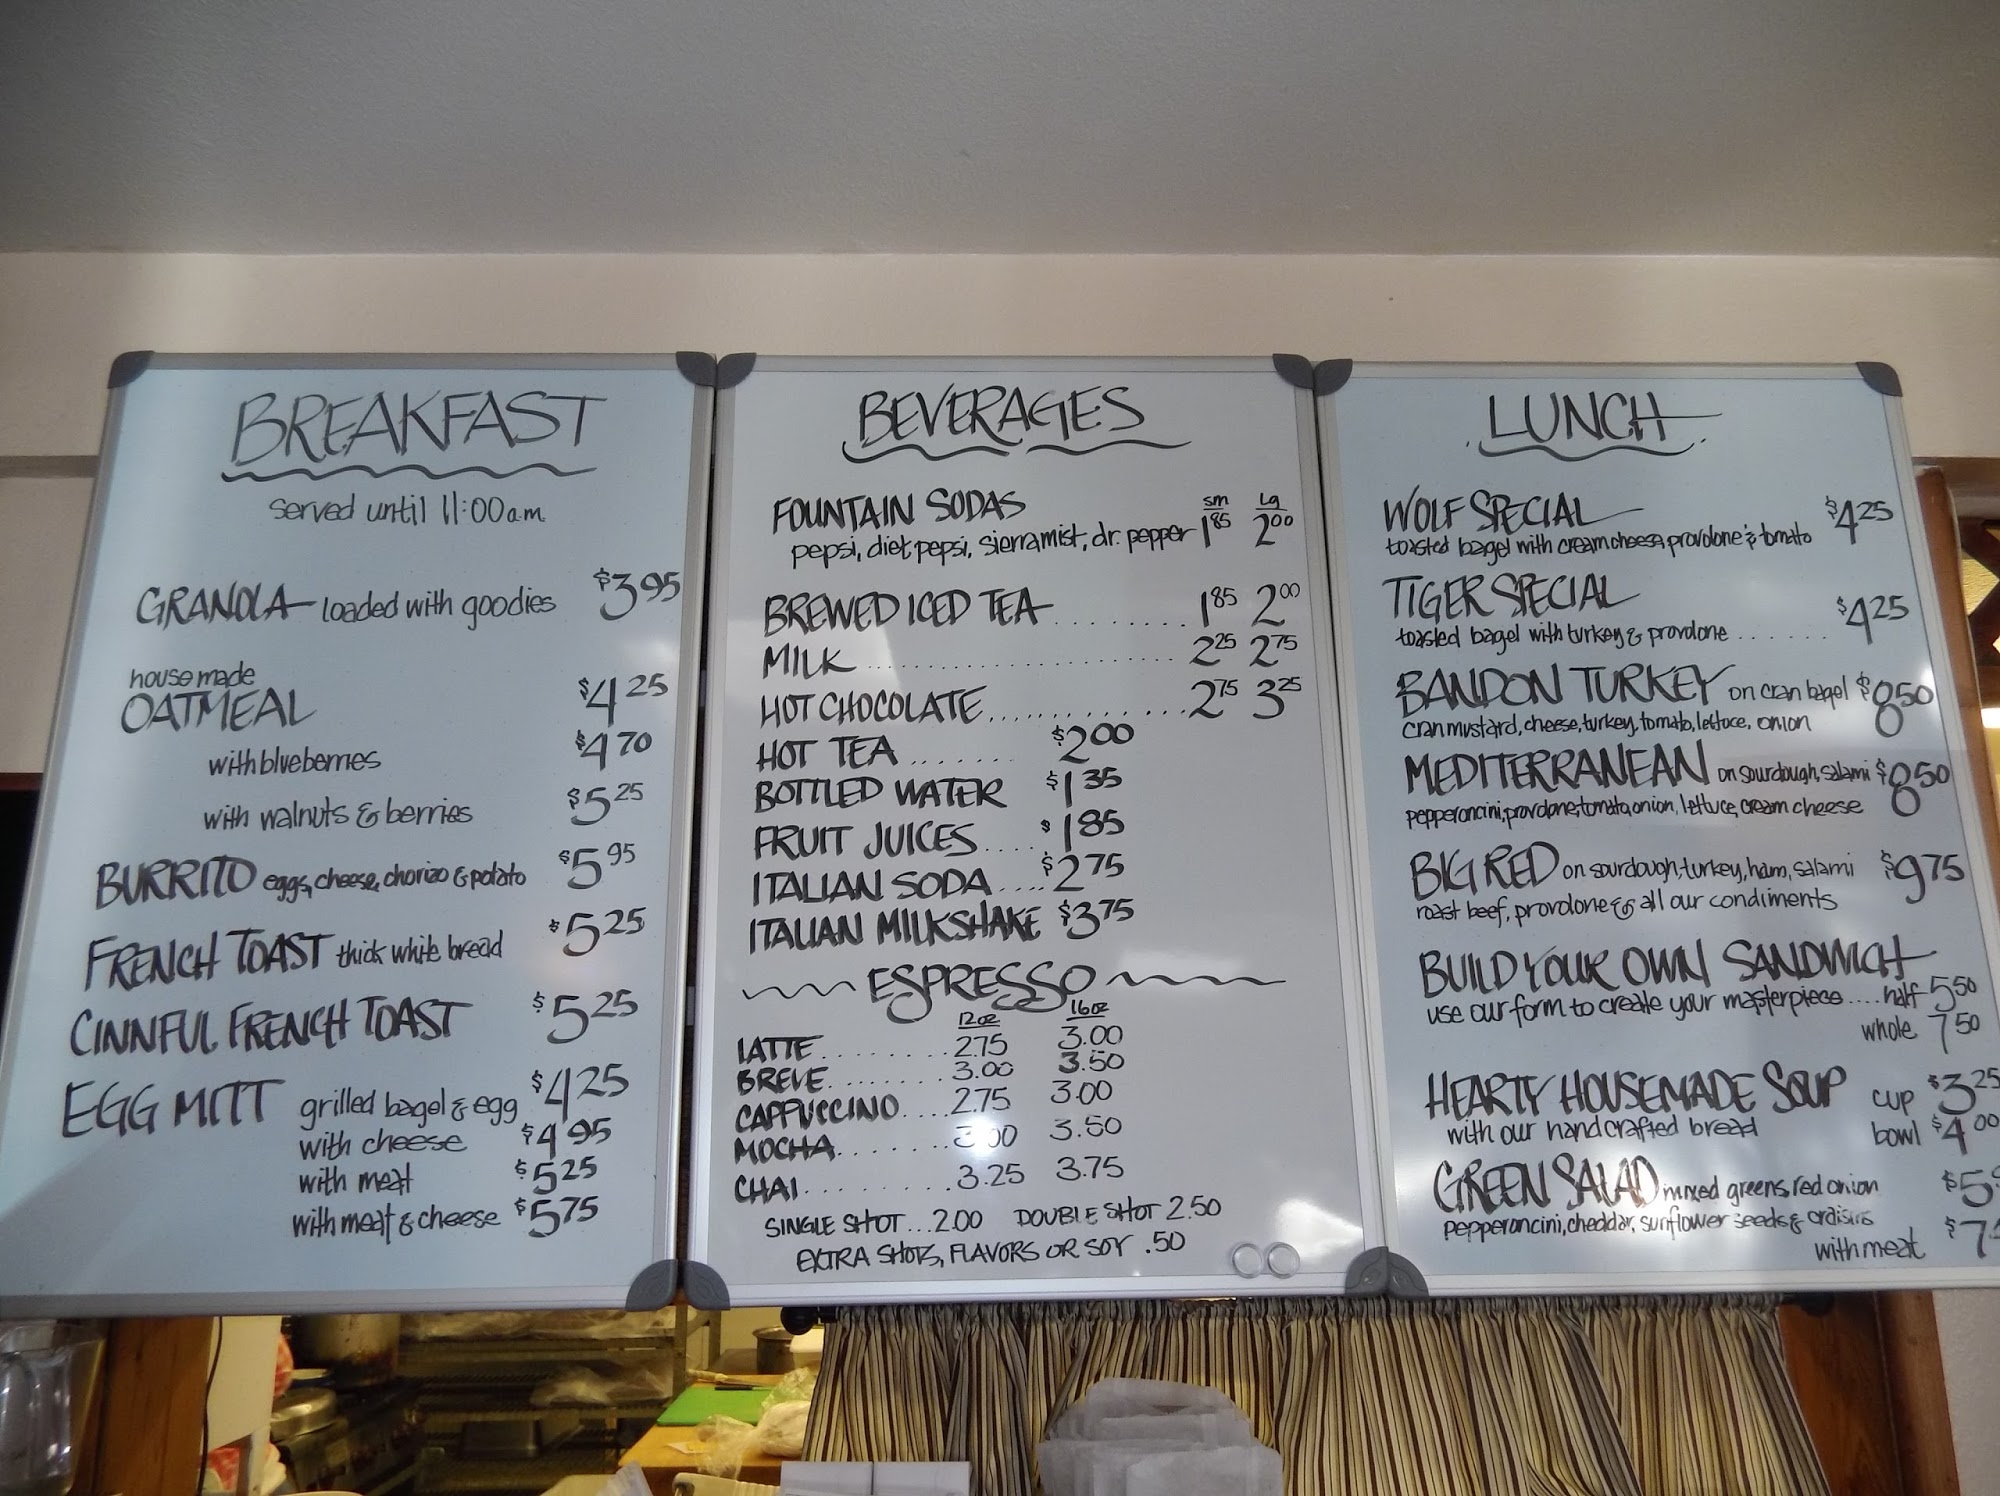 BREAKFAST
served until 11:00am
GRANOLA loaded with goodies $3.95
housemade
OATMEAL $4.25
with blueberries $4.70
with walnuts & berries $5.25
BURRITO eggs, cheese, chorizo & potato $5.95
FRENCH TOAST thick white bread $5.25
CINNFUL FRENCH TOAST $5.25
EGG MITT grilled bagel & egg $4.25
with cheese $4.95
with meat $5.25
with meat & cheese $5.75
BEVERAGES
sm Lg
FOUNTAIN SODAS
pepsi, diet pepsi, sierra mist, dr. pepper 1.85 2.00
BREWED ICED TEA........ 1.85 2.00
MILK........................ 2.25 2.75
HOT CHOCOLATE............... 2.75 3.25
HOT TEA....... $2.00
BOTTLED WATER $1.35
FRUIT JUICES.... $1.85
ITALIAN SODA.... $2.75
ITALIAN MILKSHAKE $3.75
ESPRESSO
12oz 16oz
LATTE........ 2.75 3.00
BREVE........ 3.00 3.50
CAPPUCCINO.... 2.75 3.00
MOCHA........ 3.00 3.50
CHAI.......... 3.25 3.75
SINGLE SHOT...2.00 DOUBLE SHOT 2.50
EXTRA SHOTS, FLAVORS OR SOY .50
LUNCH
WOLF SPECIAL $4.25
toasted bagel with cream cheese, provolone & tomato
TIGER SPECIAL
toasted bagel with turkey & provolone....... $4.25
BANDON TURKEY on cran bagel $8.50
cran mustard, cheese, turkey, tomato, lettuce, onion
MEDITERRANEAN on sourdough, salami $8.50
pepperoncini, provolone, tomato, onion, lettuce, cream cheese
BIG RED on sourdough, turkey, ham, salami $9.75
roast beef, provolone & all our condiments
BUILD YOUR OWN SANDWICH
use our form to create your masterpiece....half 5.50
whole 7.50
HEARTY HOUSEMADE SOUP cup $3.25
with our handcrafted bread bowl $4.00
GREEN SALAD mixed greens, red onion $5.
pepperoncini, cheddar, sunflower seeds & craisins
with meat $7.